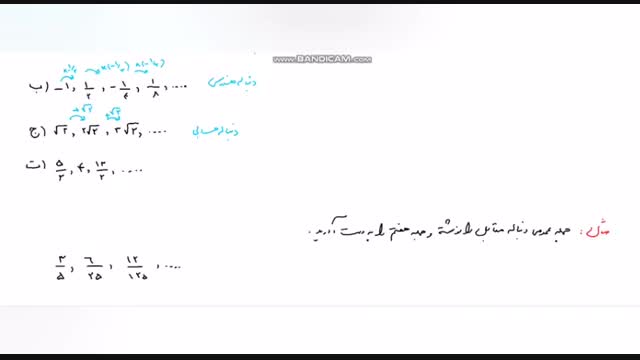 WWW.BANDICAM.COM
×(-۱/۲) ×(-۱/۲)
ب) -۱, ۱/۲, -۱/۴, ۱/۸, .... دنباله هندسی
+√۲ +√۲
ج) √۲, ۲√۲, ۳√۲, .... دنباله حسابی
ت) ۵/۲, ۴, .... 
مثال: جمله عمومی دنباله مقابل را نوشته و جمله هفتم را به دست آورید.
۳/۵, ۶/۲۵, ۱۲/۱۲۵, ....